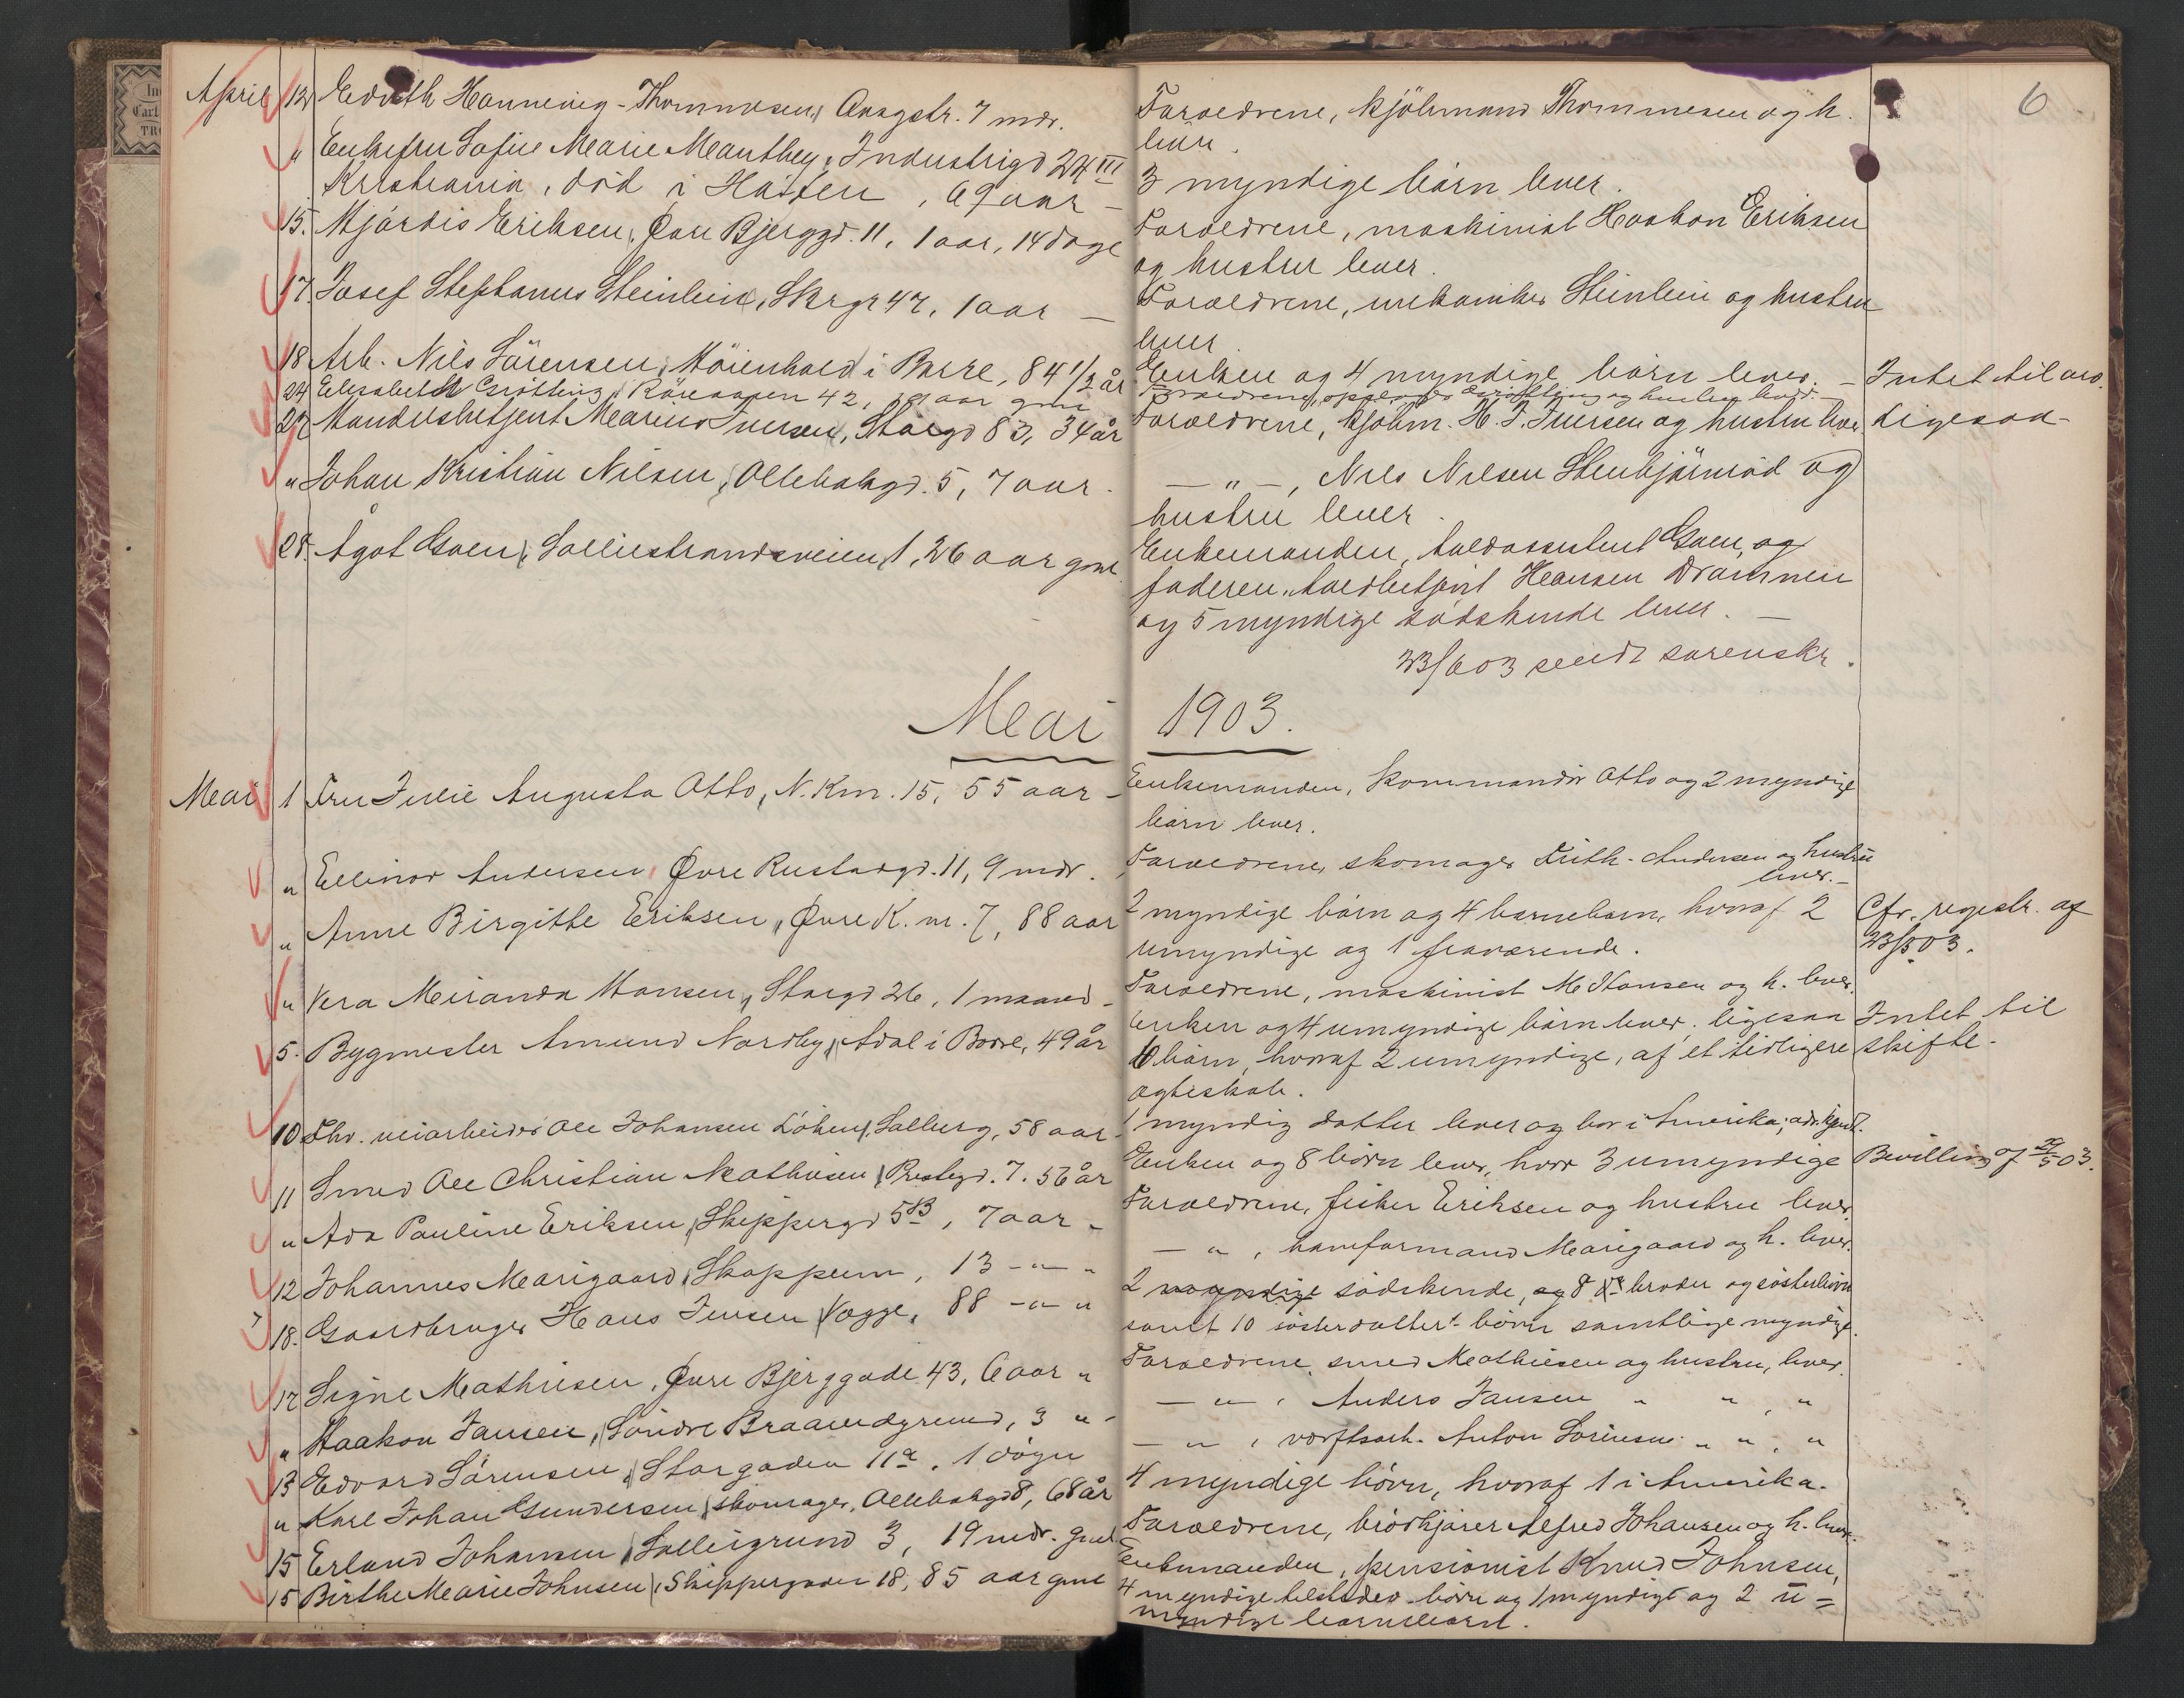 6
April 12 Henning-Thommesen, 7 mdr.
Forældrene, kjöbmand Thommesen og h.
lever.
" Enkefru Sofie Marie Manthey, Industrigd 24 III
Kristiania, död i Horten, 69 aar -
3 myndige börn lever.
15. Hjördis Eriksen, Övre Bjerggd. 11, 1 aar, 14 dage
Forældrene, maskinist Haakon Eriksen
og hustru lever.
17. Josef Stephanus Steinlein, 47, 1 aar -
Forældrene, mekaniker Steinlein og hustru
lever.
18 Arb. Nils Sörensen, i Borre, 84 1/2 år
Enken og 4 myndige börn lever. - Intet til arv.
24 Elisabeth 42, aar gml
Forældrene, og hustru lever. -
27 Handelsbetjent Marius Iversen, Storgd 83, 34 år
Forældrene, kjöbm. H. J. Iversen og hustru lever. Ligesaa -
" Johan Kristian Nilsen, Ollebakgd. 5, 7 aar.
- " -, Nils Nilsen Stenbjörnröd og
hustru lever.
28. Ågot Goen, Solliestrandsveien 1, 26 aar gml.
Enkemanden, toldassistent Goen, og
faderen, toldbetjent Hansen Drammen
og 5 myndige södskende lever. -
23/6 03 sendt sorenskr.
Mai 1903.
Mai 1 Fru Julie Augusta Otto, N. Km. 15, 55 aar -
Enkemanden, Kommandör Otto og 2 myndige
börn lever.
" Ellinor Andersen, Övre Rustadgd. 11, 9 mdr.
Forældrene, skomager Andersen og hustru
lever. -
" Anne Birgitte Eriksen, Övre K. nr. 7, 88 aar
2 myndige börn og 4 barnebarn, hvoraf 2 Cfr. registr. af
umyndige og 1 fraværende. 23/5 03.
" Vera Miranda Hansen, Storgd 26, 1 maaned -
Forældrene, maskinist M Hansen og h. lever.
5. Bygmester Amund Nordby, Adal i Borre, 49 år
Enken og 4 umyndige börn lever. ligesaa Intet til
6 börn, hvoraf 2 umyndige, af et tidligere skifte.
ægteskab.
10 Fhv. veiarbeider Ole Johansen Löken, Solberg, 58 aar -
1 myndig datter lever og bor i Amerika; adr. kjendt.
11 Smed Ole Christian Mathisen, Prestegd. 7. 56 år
Enken og 8 börn lever, hvor 3 umyndige Bevilling af 29/5 03.
" Ada Pauline Eriksen, Skippergd 5B, 7 aar -
Forældrene, fisker Eriksen og hustru lever.
12 Johannes Marigaard, Skoppum, 13 - " -
- " , baneformand Marigaard og h. lever.
18. Gaardbruger Hans Jensen Vogge, 88 - " "
2 myndige södskende, og 8 broder og sösterbörn
samt 10 sösterdatters börn samtlige myndige.
12 Signe Mathiesen, Övre Bjerggade 43, 6 aar "
Forældrene, smed Mathiesen og hustru, lever.
" Haakon Jansen, Söndre Braarudgrund, 3 " -
- " - , Anders Jansen " " , "
13 Edvard Sörensen, Storgaden 11a, 1 dögn
- " - , verftsarb. Anton Sörensen " " , "
" Karl Johan Gundersen, skomager, Ollebakgd 8, 68 år
4 myndige börn, hvoraf 1 i Amerika.
15 Erland Johansen, Solliegrund 3, 19 mdr. gml
Forældrene, brödkjörer Alfred Johansen og h. lever.
15 Birthe Marie Johnsen, Skippergaden 18, 85 aar gml
Enkemanden, pensionist Knud Johnsen,
4 myndige börn og 1 myndigt og 2 u=
myndige barnebarn.